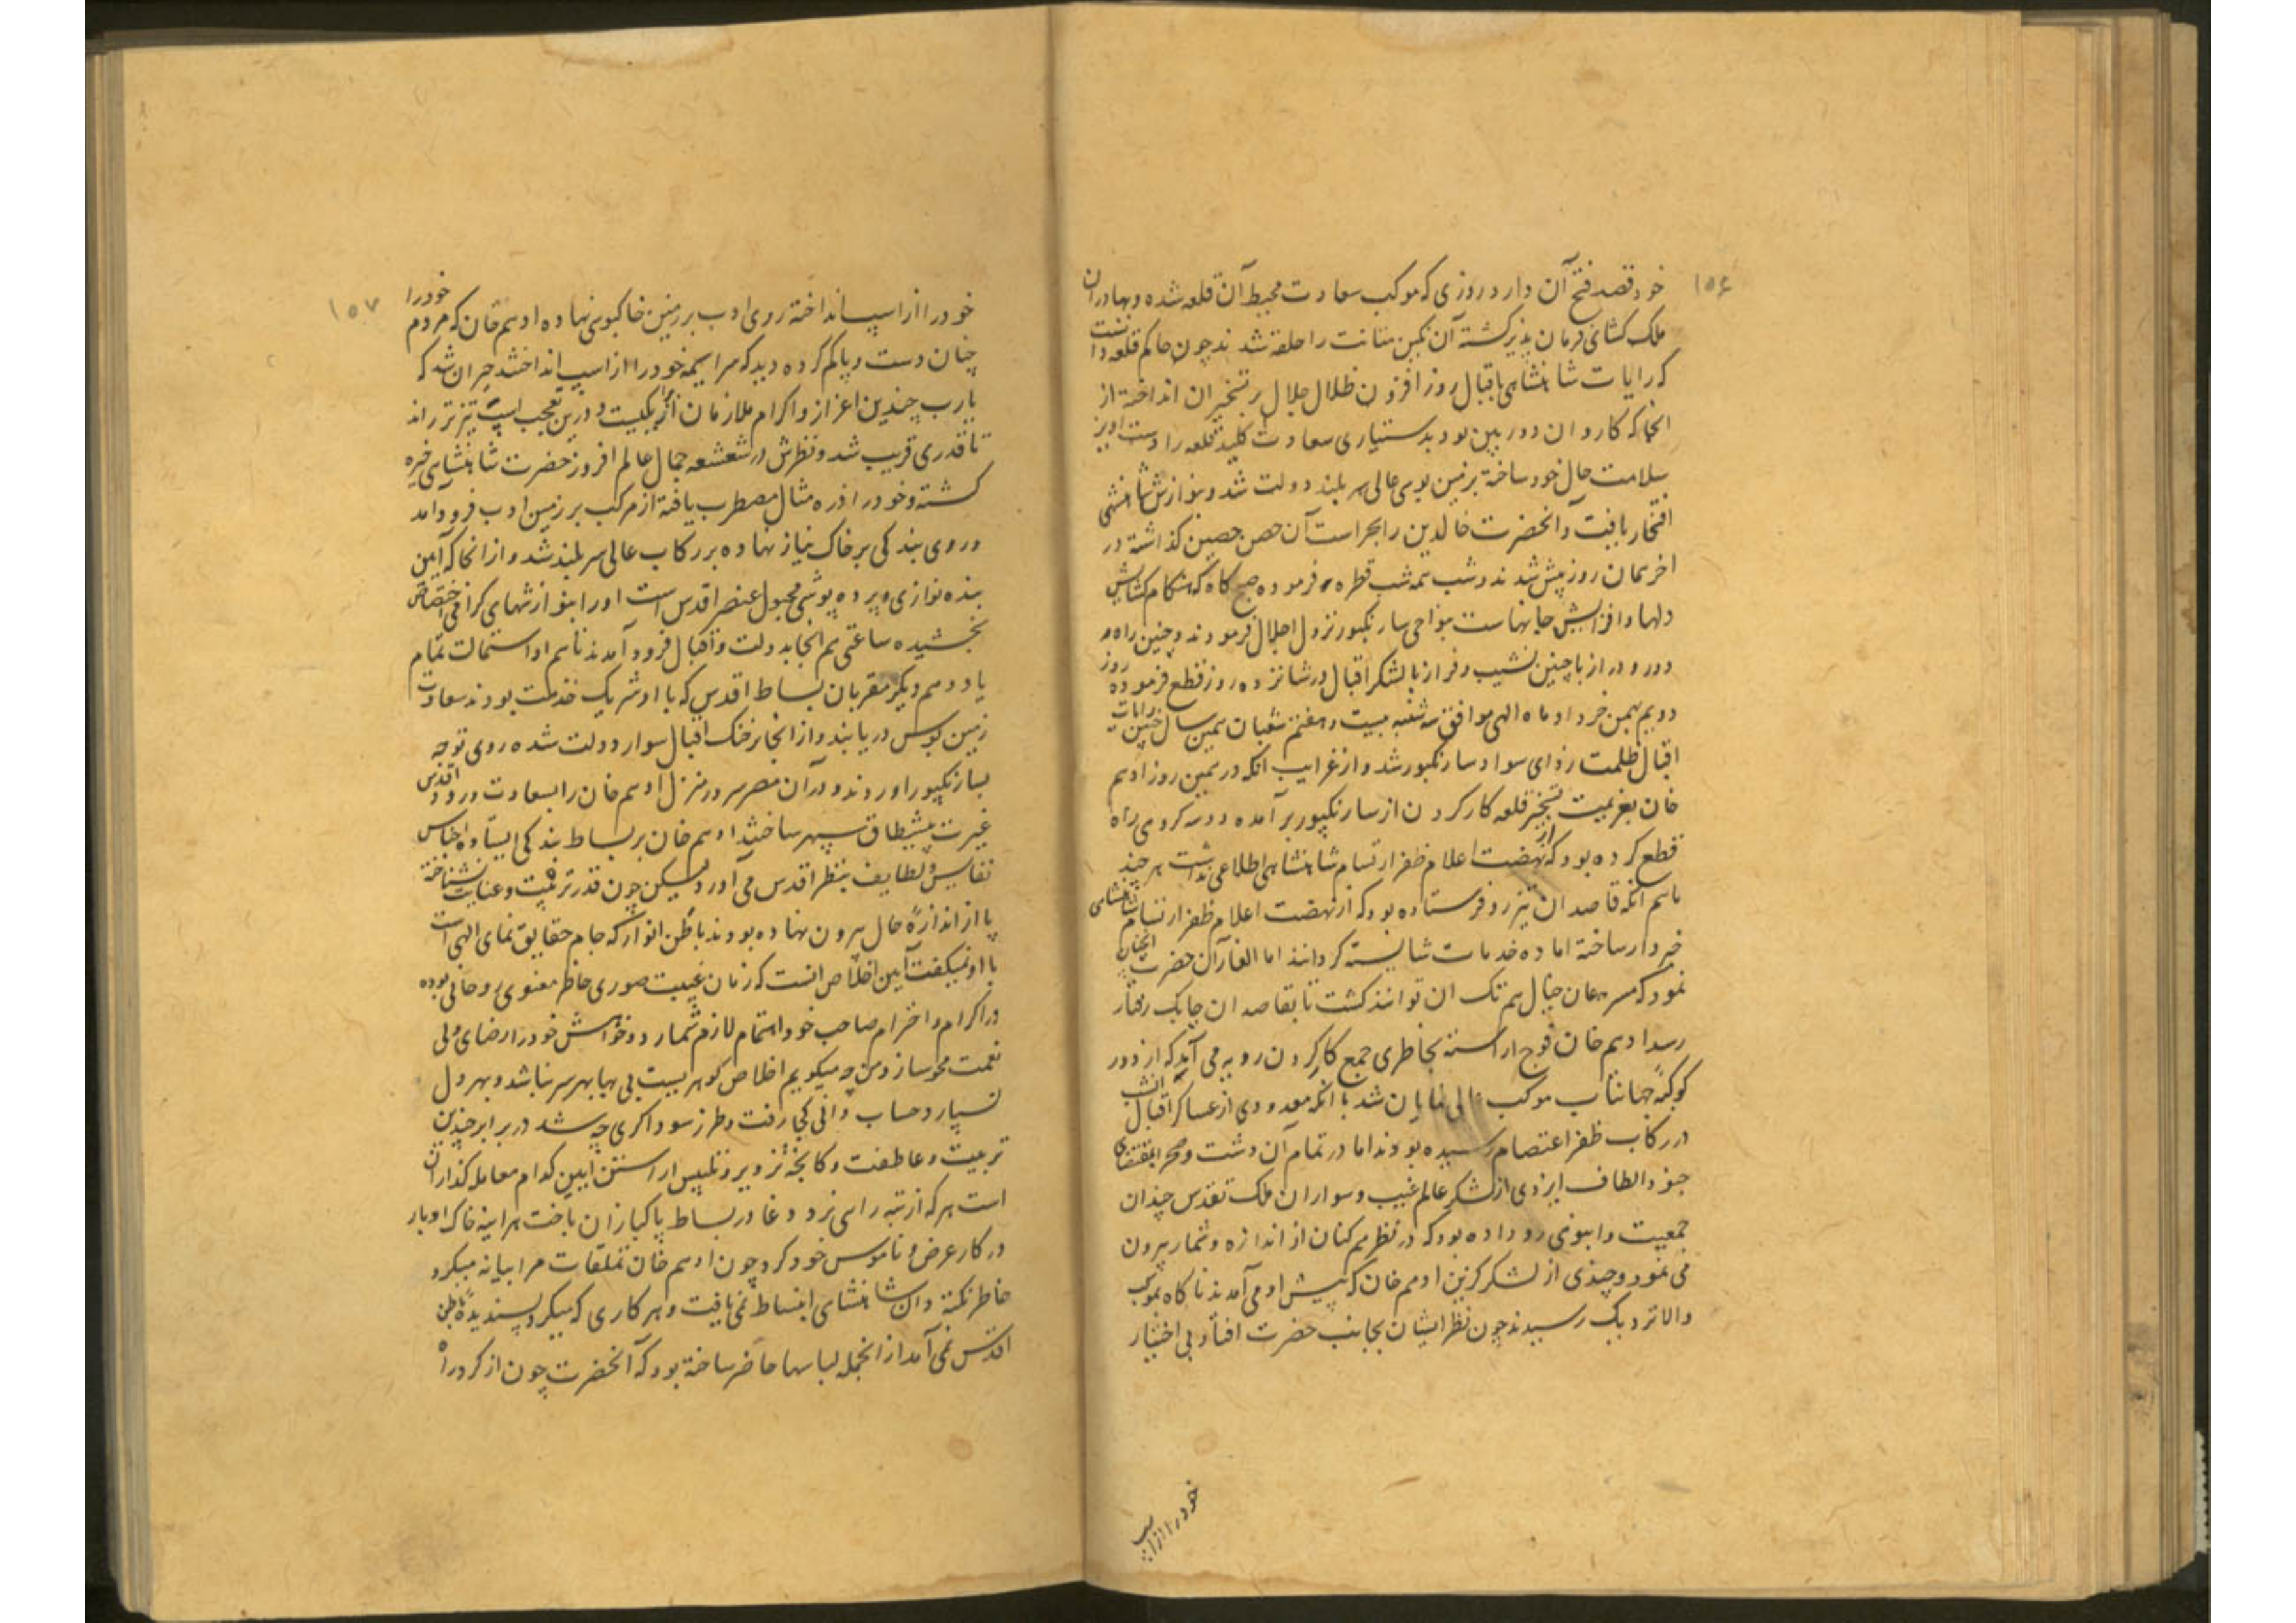 ۱۵۶
خود قصد فتح آن دارد روزی که موکب سعادت محیط آن قلعه شده و بهادران
ملک کشای فرمان پذیر کشته آن نکین متانت را حلقه شدند چون حاکم قلعه دانست
که رایات شاهنشاهی باقبال روز افزون ظلال جلال بر تسخیر ان انداخته از
انجا که کاردان دوربین بود بدستیاری سعادت کلید قلعه را دست اویز
سلامت حال خود ساخته بزمین بوسی عالی سر بلند دولت شد و بنوازش شاهنشهی
افتخار یافت و آنحضرت خالدین را بحراست آن حصن حصین کذاشته در
اخر همان روز پیش شدند و شب همه شب قطره فرموده صبح کاه که هنکام کشایش
دلها و افزایش جانهاست بنواحی سارنکپور نزول اجلال فرمودند و چنین راه
دور و دراز با چنین نشیب و فراز با لشکر اقبال در شانزده روز قطع فرموده روز
دویم بهمن خرداد ماه الهی موافق سه شنبه بیست و هفتم شعبان همین سال چنین رایات
اقبال ظلمت زدای سواد سارنکپور شد و از غرایب انکه در همین روز ادهم
خان بعزیمت تسخیر قلعه کارکرون از سارنکپور بر آمده دو سه کروهی راه
قطع کرده بود که از نهضت اعلام ظفر ارتسام شاهنشاهی اطلاعی نداشت هر چند
ماهم انکه قاصدان تیز رو فرستاده بود که از نهضت اعلام ظفر ارتسام شاهنشاهی
خبردار ساخته اماده خدمات شایسته کردانند اما ایلغار آن حضرت انچنان
نمود که مسرعان خیال هم تک ان توانند کشت تا بقاصدان چابک رفتار
رسد ادهم خان فوج اراسته بخاطری جمع کارکرون رویه می آید که از دور
کوکبه جهانتاب موکب عالی نمایان شد با انکه معدودی از عساکر اقبال
در رکاب ظفر اعتصام رسیده بودند اما در تمام آن دشت و صحرا بمقتضای
جنود الطاف ایزدی از لشکر عالم غیب و سواران ملک تقدس چندان
جمعیت و انبوهی رو داده بود که در نظر همکنان از اندازه و شمار بیرون
می نمود و چندی از لشکر کزین ادهم خان که پیش او می آمدند ناکاه بموکب
والا نزدیک رسیدند چون نظر ایشان بجانب حضرت افتاد بی اختیار
خود را از اسپ
۱۵۷
خود را از اسپ انداخته روی ادب بر زمین خاکبوسی نهاده ادهم خان که مردم خود را
چنان دست و پا کم کرده دید که سراسیمه خود را از اسپ انداختند حیران شد که
یارب چندین اعزاز و اکرام ملازمان از برای کیست و درین تعجب اسپ تیزتر راند
تا قدری قریب شد و نظرش در شعشعه جمال عالم افروز حضرت شاهنشاهی خیره
کشته و خود را ذره مثال مضطرب یافته از مرکب بر زمین ادب فرود آمد
و روی بندکی بر خاک نیاز نهاده برکاب عالی سر بلند شد و از انجا که آیین
بنده نوازی و پرده پوشی مجبول عنصر اقدس است او را بنوازشهای کرامی اختصاص
بخشیده ساعتی هم انجا بدولت و اقبال فرود آمدند تا هم او استمالت تمام
یابد و هم دیکر مقربان بساط اقدس که با او شریک خدمت بودند سعادت
زمین بوس دریابند و از انجا بر خنک اقبال سوار دولت شده روی توجه
بسارنکپور اوردند و در آن مصر سرور منزل ادهم خان را بسعادت ورود اقدس
غیرت پیشطاق سپهر ساختند ادهم خان بر بساط بندکی ایستاده اجناس
نفایس و لطایف بنظر اقدس می آورد لیکن چون قدر تربیت و عنایت نشناخته
پا از اندازه حال بیرون نهاده بودند باطن انوار که جام حقایق نمای الهی است
با او نمیکفت آیین اخلاص انست که زمان غیبت صوری حاظر معنوی روحانی بوده
در اکرام و احترام صاحب خود اهتمام لازم شمارد و خواهش خود را رضای ولی
نعمت محو سازد من چه میکویم اخلاص کوهریست بی بها بهر سر نباشد و بهر دل
نسپارد حساب دانی کجا رفت و طرز سوداکری چه شد در برابر چندین
تربیت و عاطفت دکانچه تزویر و تلبیس اراستن آیین کدام معامله کذاران
است هر که از تبه رایی نرد دغا در بساط پاکبازان باخت هراینه خاک ادبار
در کار عرض و ناموس خود کرد چون ادهم خان تملقات مرابیانه میکرد
خاطر نکته دان شاهنشاهی انبساط نمی یافت و هر کاری که میکرد پسندیده باطن
اقدس نمی آمد از انجمله لباسها حاضر ساخته بود که آنحضرت چون از کرد راه